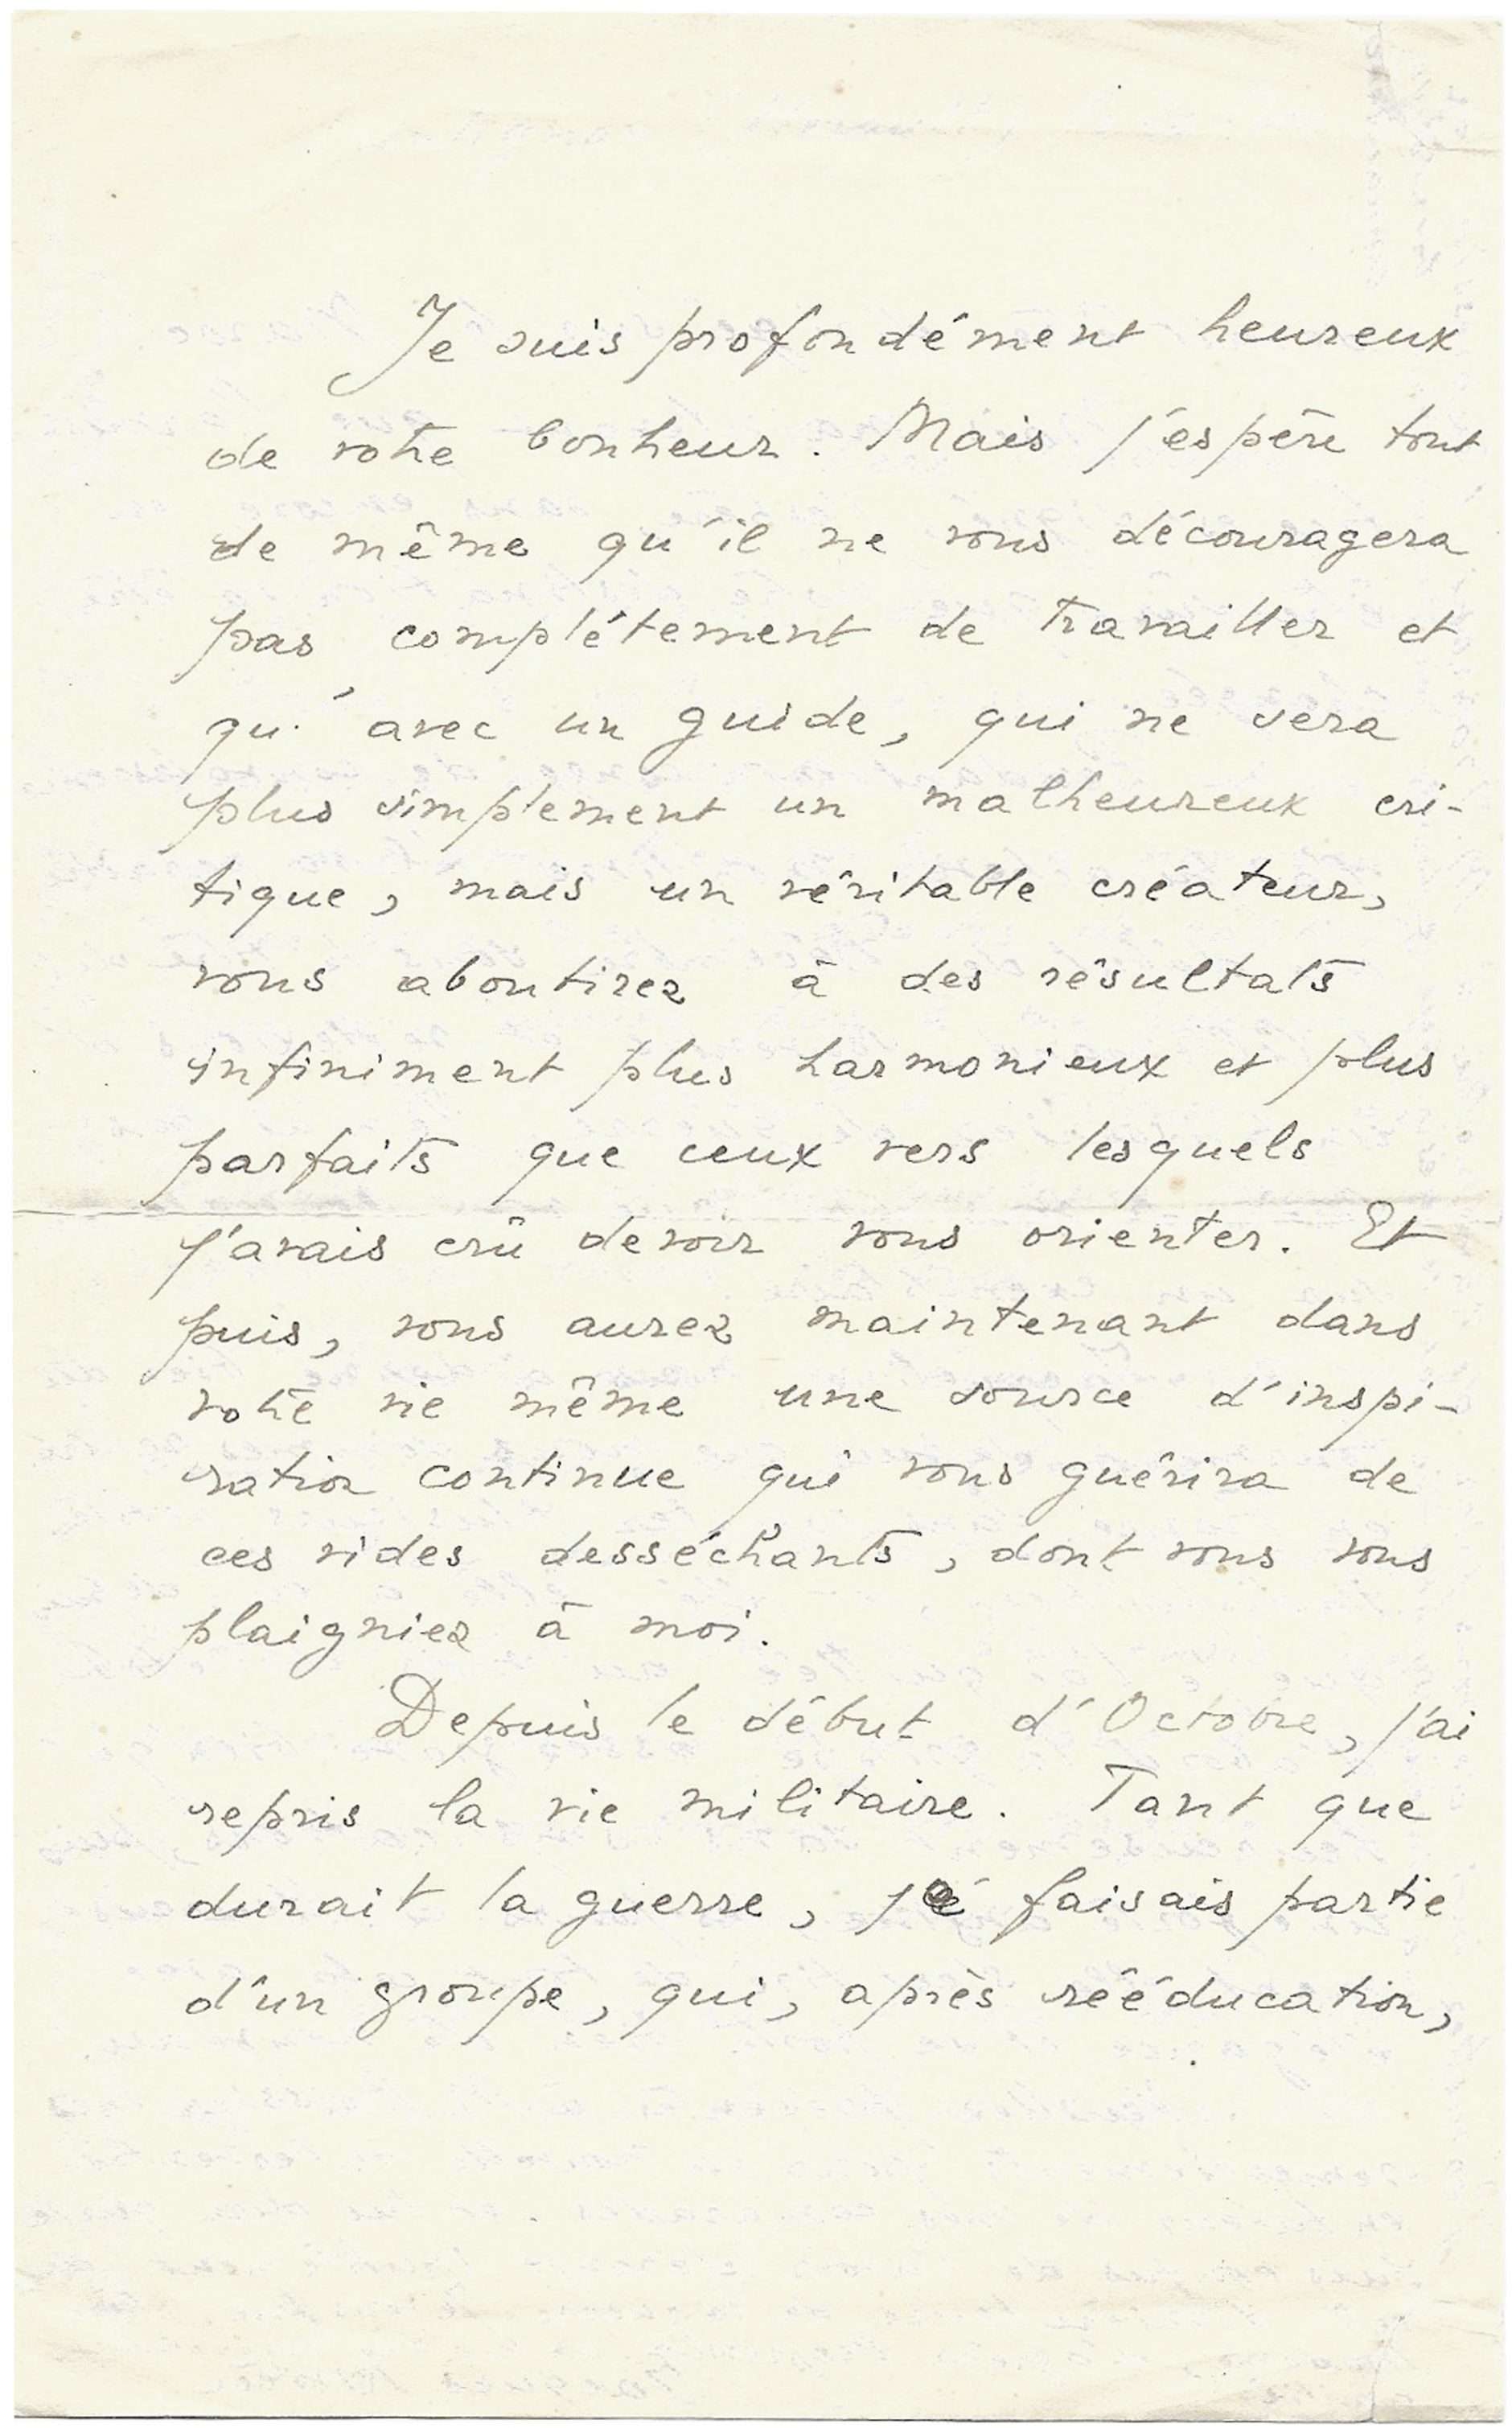 Je suis profondément heureux
de votre bonheur. Mais j'espère tout
de même qu'il ne vous découragera
pas complétement de travailler et
qu'avec un guide, qui ne sera
plus simplement un malheureux cri-
tique, mais un véritable créateur,
vous aboutirez à des résultats
infiniment plus harmonieux et plus
parfaits que ceux vers lesquels
j'avais crû devoir vous orienter. Et
puis, vous aurez maintenant dans
votre vie même une source d'inspi-
ration continue qui vous guérira de
ces vides desséchants, dont vous vous
plaigniez à moi.
Depuis le début d'Octobre, j'ai
repris la vie militaire. Tant que
durait la guerre, je faisais partie
d'un groupe, qui, après rééducation,